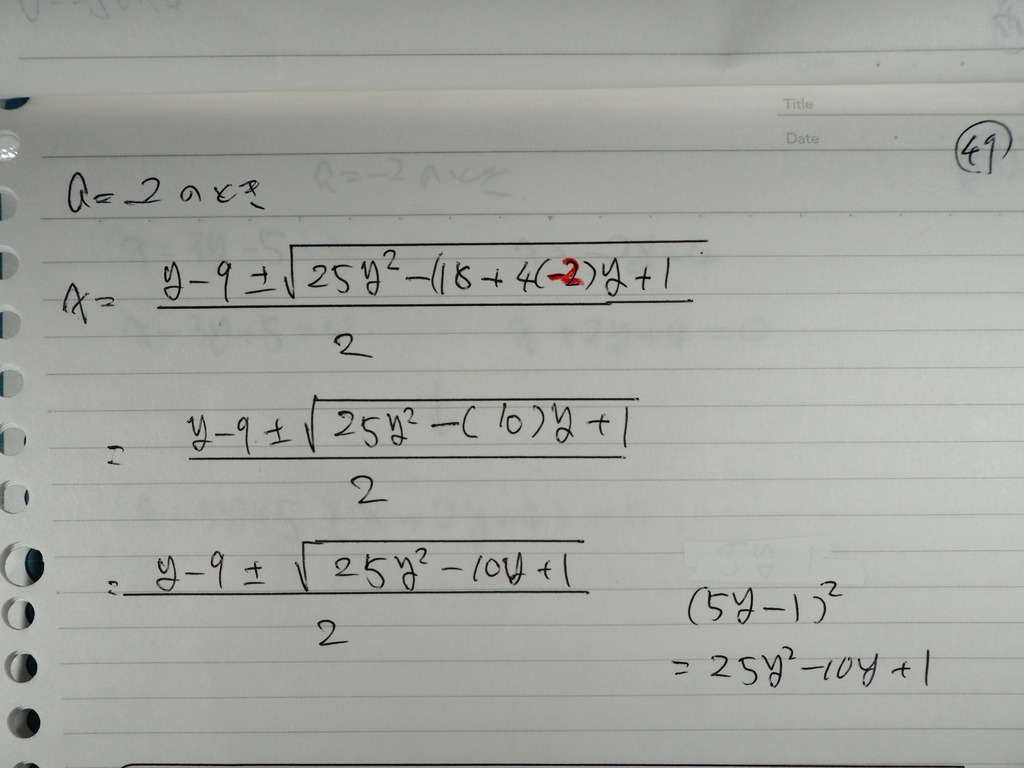 Title
Date
49
a=-2 のとき
x = \frac{y-9 ± \sqrt{25y² -(18+4(-2)y+1}}{2}
= \frac{y-9 ± \sqrt{25y² -(10)y+1}}{2}
= \frac{y-9 ± \sqrt{25y² -10y+1}}{2}
(5y-1)²
= 25y²-10y+1